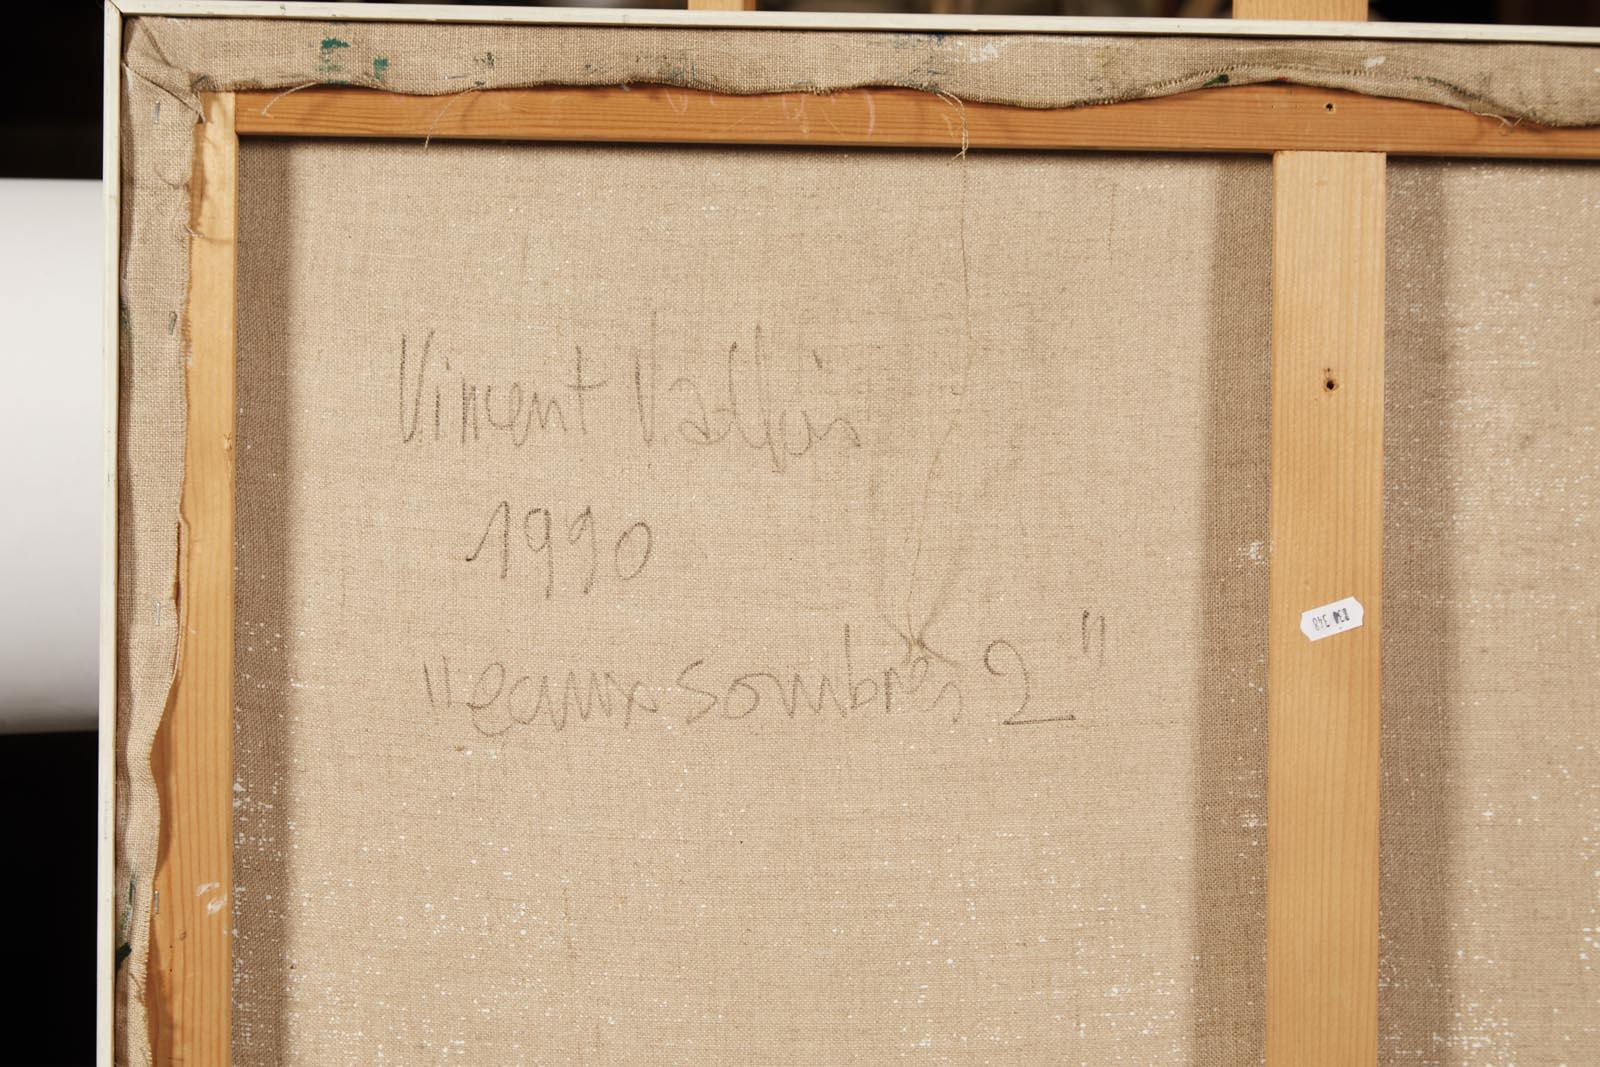 Vincent
1990
"eaux sombres 2"
348